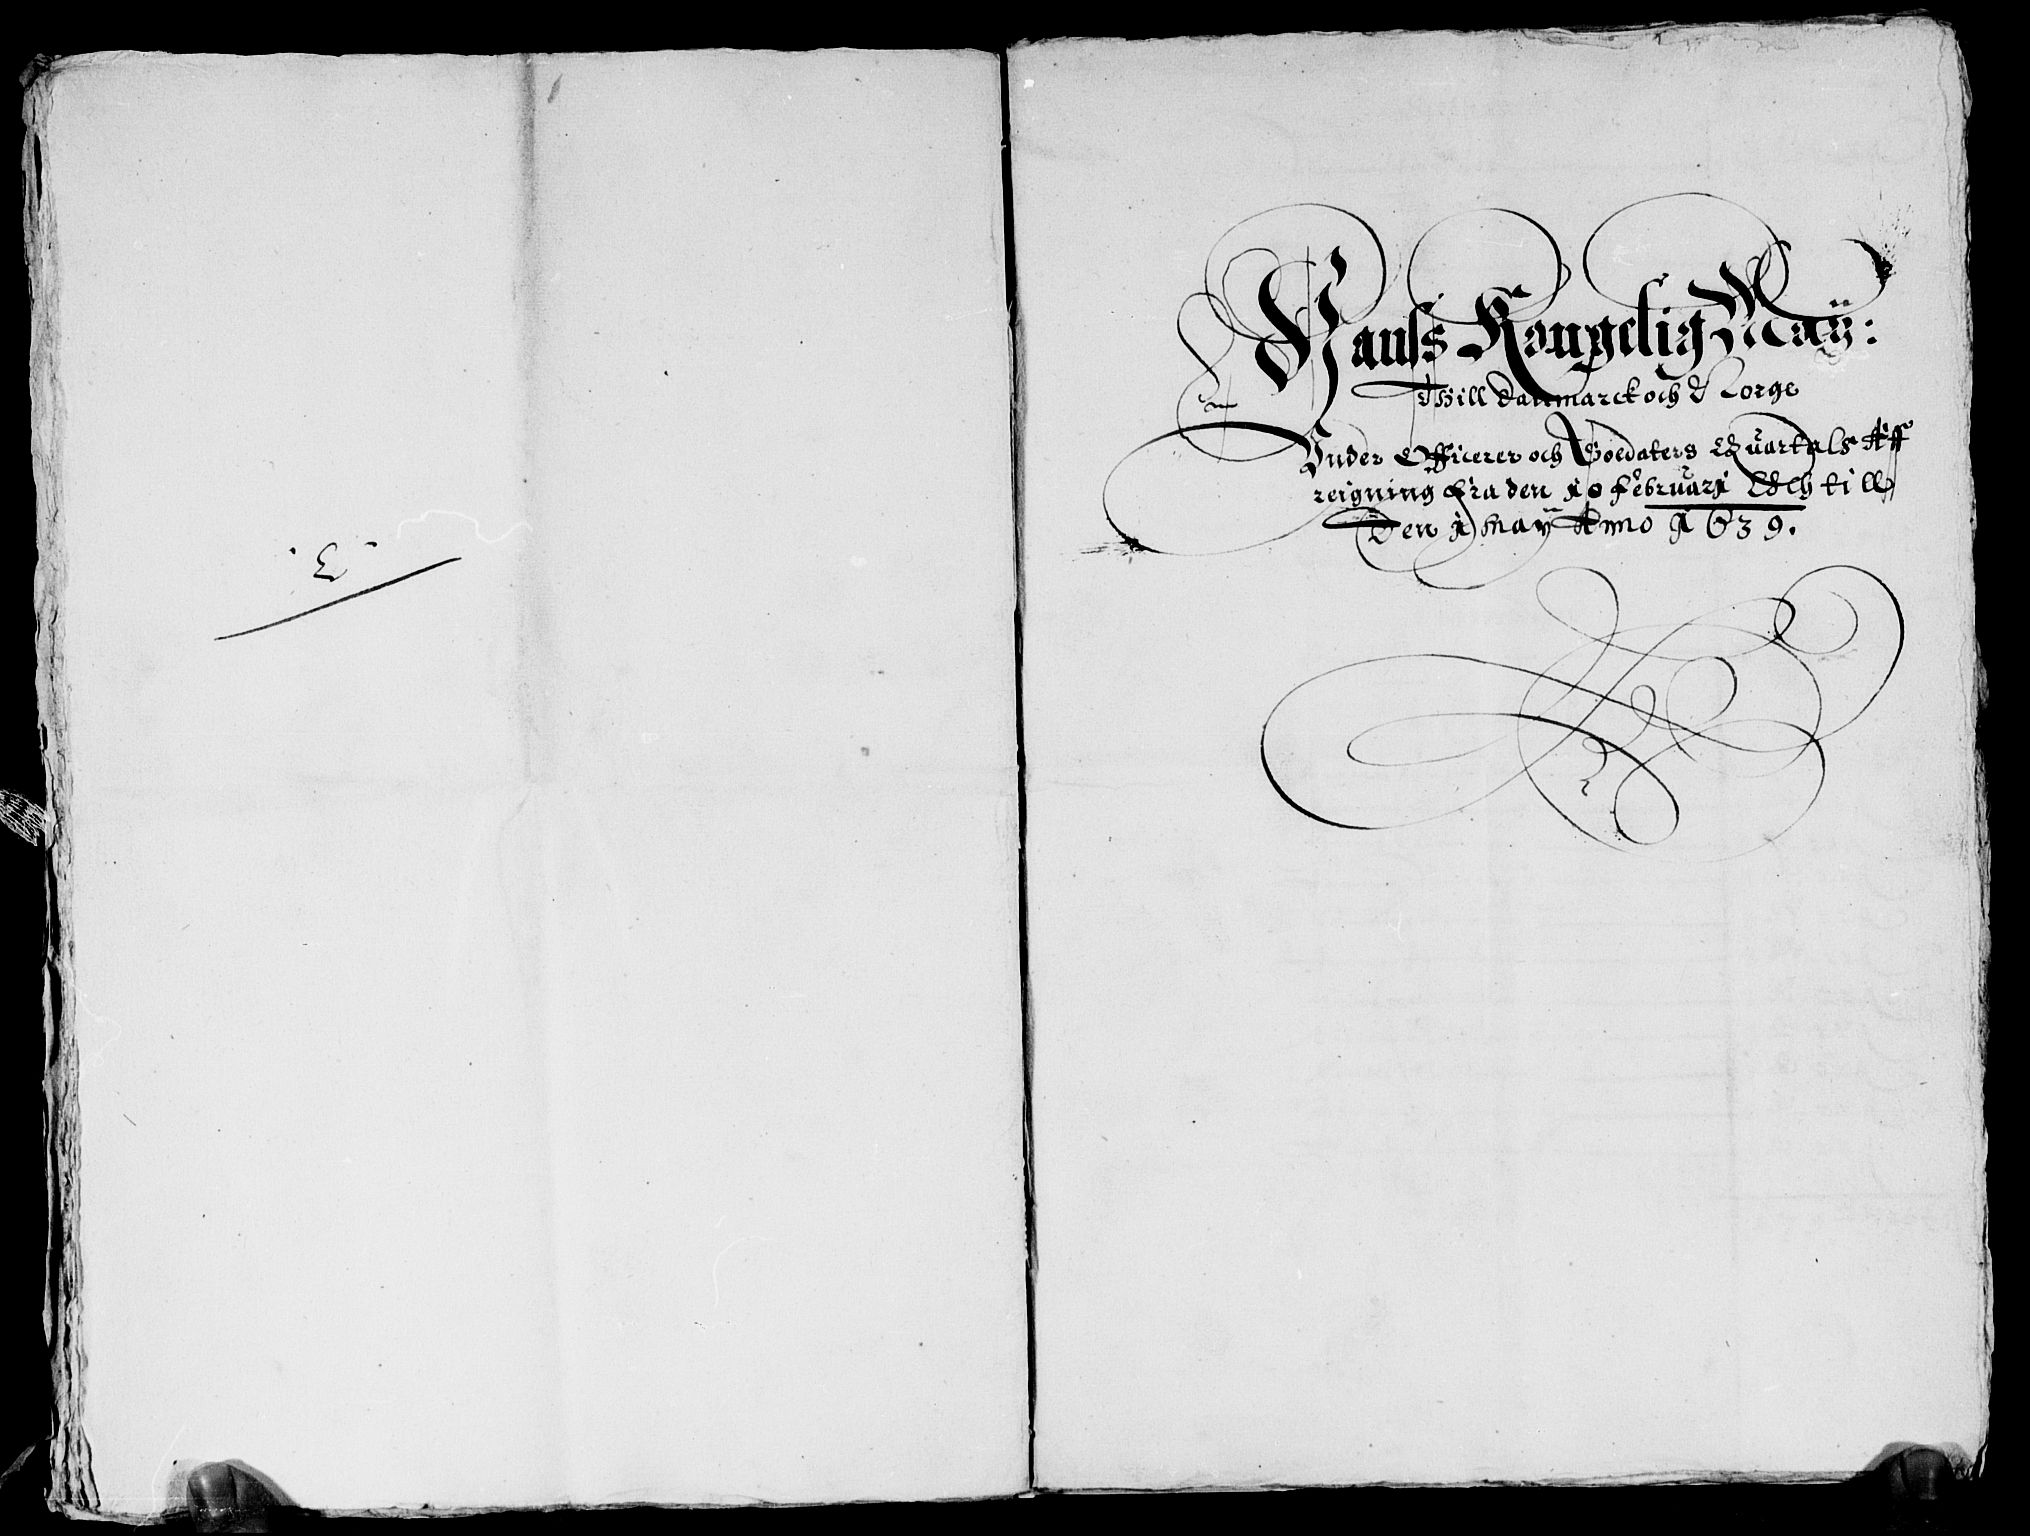 3
Hanss Kongelig Maÿ:
Till Danmarck och Norge
Vnder Officerer och Soldaters Quartals Aff
reigning fra den 10 Februarj Och till
Den 1 Maÿ Anno 1639.